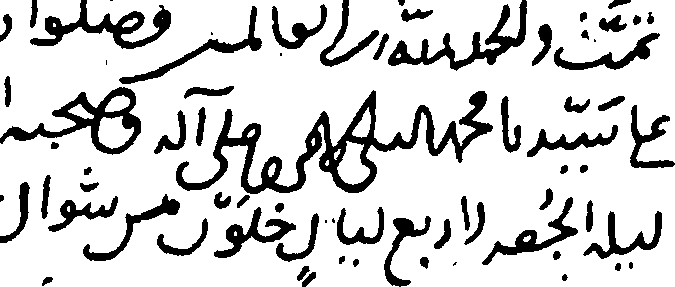 تمّت والحمد لله رب العالمين وصلوا
على سيّدنا محمد النبي وعلى آله وصحبه
ليلة الجُمعه لاربع ليالٍ خلَوْن من شوال